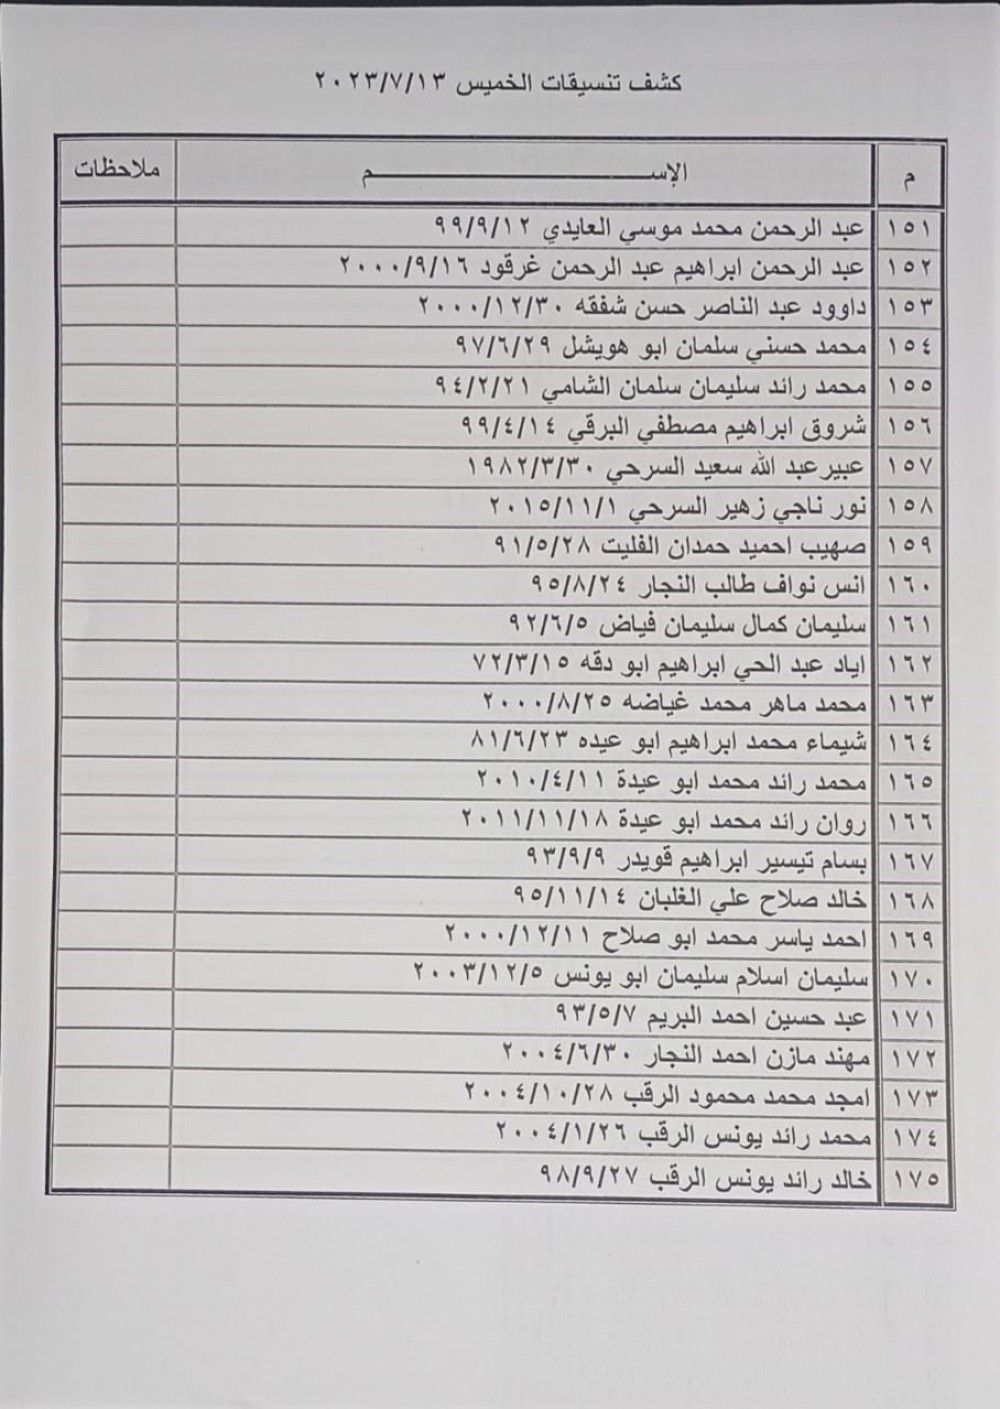 كشف تنسيقات الخميس ٢٠٢٣/٧/١٣
م الإســـــــــم ملاحظات
١٥١ عبد الرحمن محمد موسي العايدي ٩٩/٩/١٢
١٥٢ عبد الرحمن ابراهيم عبد الرحمن غرقود ٢٠٠٠/٩/١٦
١٥٣ داوود عبد الناصر حسن شفقه ٢٠٠٠/١٢/٣٠
١٥٤ محمد حسني سلمان ابو هويشل ٩٧/٦/٢٩
١٥٥ محمد رائد سليمان سلمان الشامي ٩٤/٢/٢١
١٥٦ شروق ابراهيم مصطفي البرقي ٩٩/٤/١٤
١٥٧ عبيرعبد الله سعيد السرحي ١٩٨٢/٣/٣٠
١٥٨ نور ناجي زهير السرحي ٢٠١٥/١١/١
١٥٩ صهيب احميد حمدان الفليت ٩١/٥/٢٨
١٦٠ انس نواف طالب النجار ٩٥/٨/٢٤
١٦١ سليمان كمال سليمان فياض ٩٢/٦/٥
١٦٢ اياد عبد الحي ابراهيم ابو دقه ٧٢/٣/١٥
١٦٣ محمد ماهر محمد غياضه ٢٠٠٠/٨/٢٥
١٦٤ شيماء محمد ابراهيم ابو عيده ٨١/٦/٢٣
١٦٥ محمد رائد محمد ابو عيدة ٢٠١٠/٤/١١
١٦٦ روان رائد محمد ابو عيدة ٢٠١١/١١/١٨
١٦٧ بسام تيسير ابراهيم قويدر ٩٣/٩/٩
١٦٨ خالد صلاح علي الغلبان ٩٥/١١/١٤
١٦٩ احمد ياسر محمد ابو صلاح ٢٠٠٠/١٢/١١
١٧٠ سليمان اسلام سليمان ابو يونس ٢٠٠٣/١٢/٥
١٧١ عبد حسين احمد البريم ٩٣/٥/٧
١٧٢ مهند مازن احمد النجار ٢٠٠٤/٦/٣٠
١٧٣ امجد محمد محمود الرقب ٢٠٠٤/١٠/٢٨
١٧٤ محمد رائد يونس الرقب ٢٠٠٤/١/٢٦
١٧٥ خالد رائد يونس الرقب ٩٨/٩/٢٧